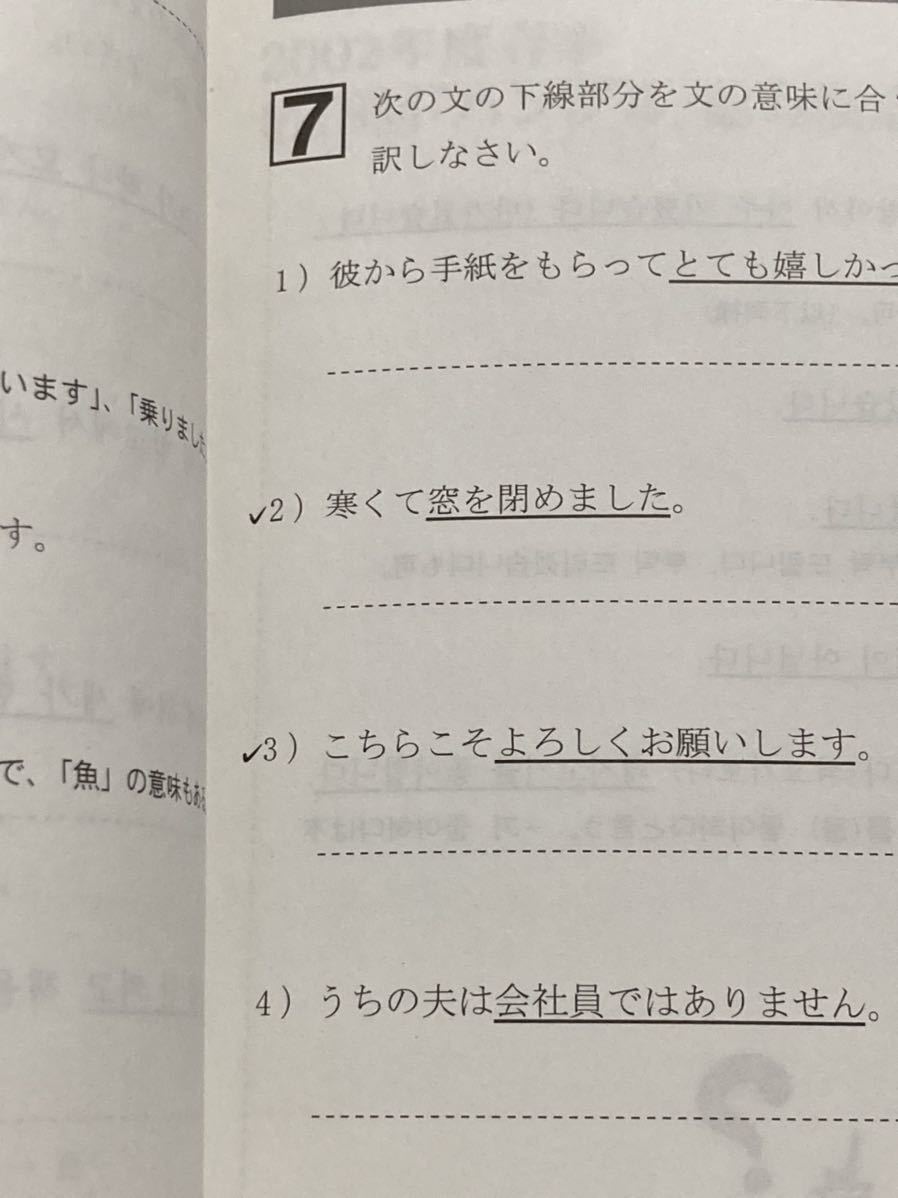 います」、「乗りました
す。
で、「魚」の意味もある
7
次の文の下線部分を文の意味に合
訳しなさい。
1）彼から手紙をもらってとても嬉しかっ
✓2）寒くて窓を閉めました。
✓3）こちらこそよろしくお願いします。
4）うちの夫は会社員ではありません。